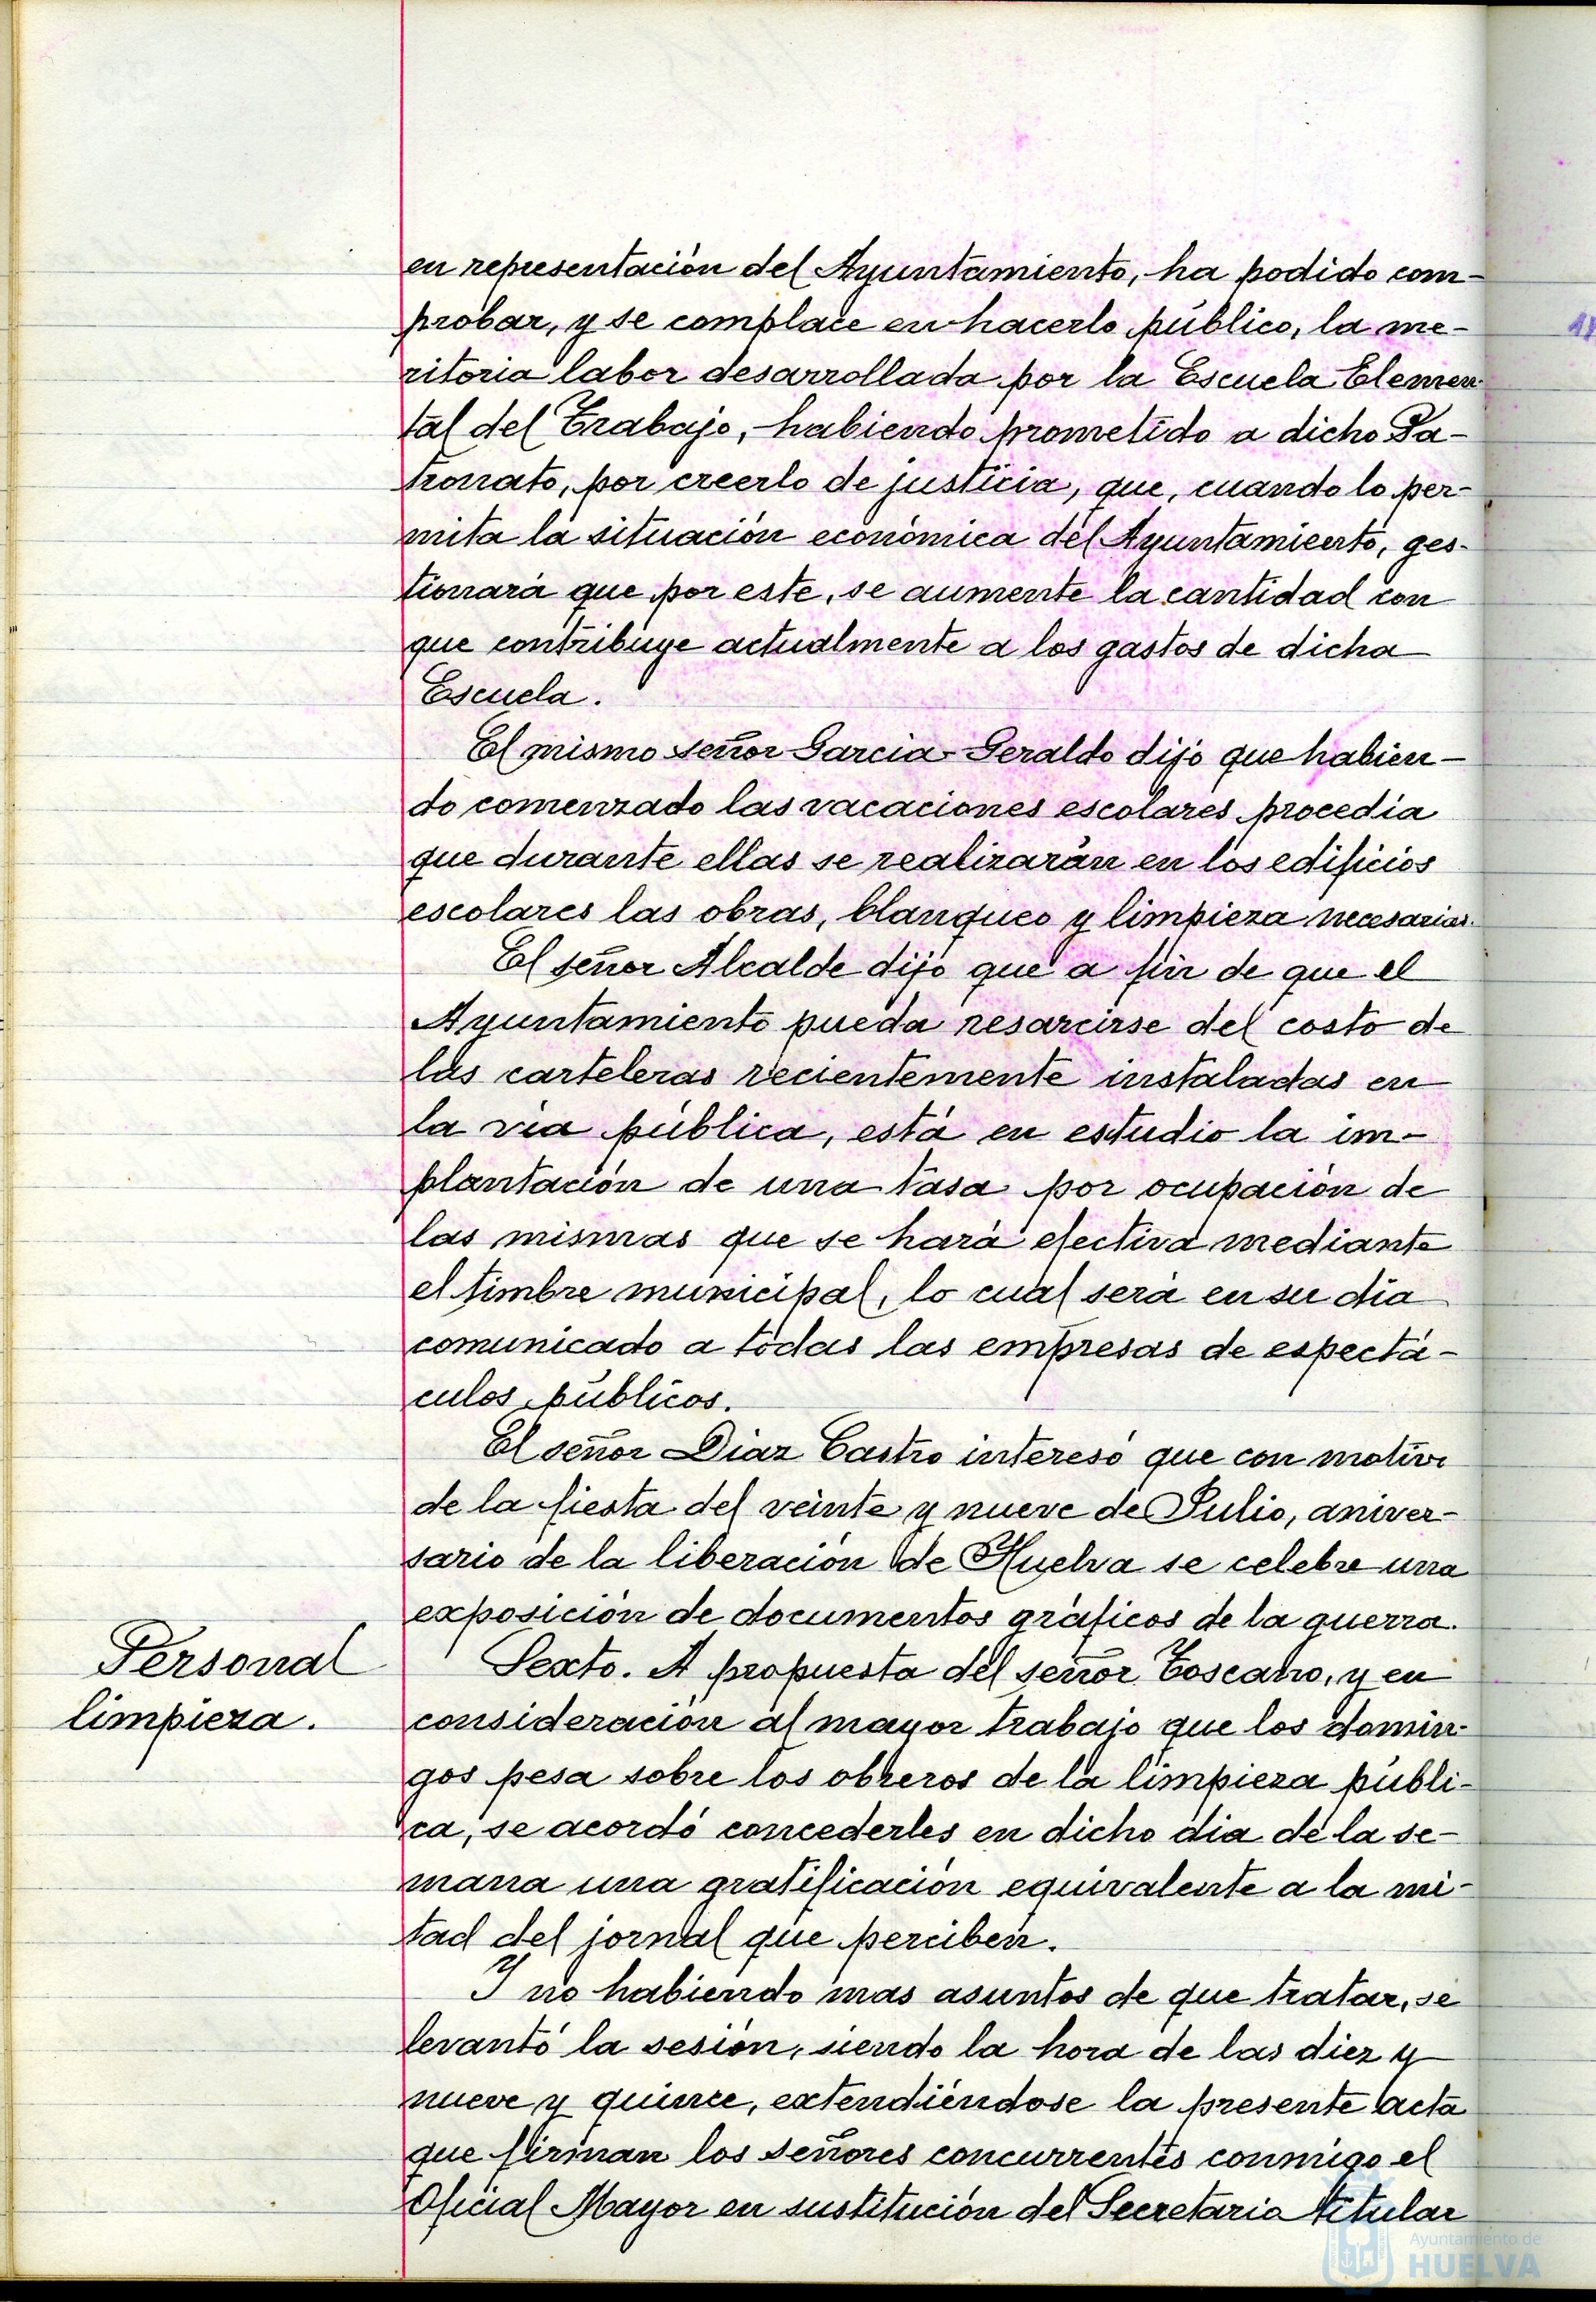 en representación del Ayuntamiento, ha podido com-
probar, y se complace en hacerlo público, la me-
ritoria labor desarrollada por la Escuela Elemen
tal del Trabajo, habiendo prometido a dicho Pa-
tronato, por creerlo de justicia, que, cuando lo per-
mita la situación económica del Ayuntamiento, ges-
tionará que por este, se aumente la cantidad con
que contribuye actualmente a los gastos de dicha
Escuela.
El mismo señor Garcia Geraldo dijo que habien-
do comenzado las vacaciones escolares procedia
que durante ellas se realizarán en los edificios
escolares las obras, blanqueo y limpieza necesarias.
El señor Alcalde dijo que a fin de que el
Ayuntamiento pueda resarcirse del costo de
las carteleras recientemente instaladas en
la via pública, está en estudio la im-
plantación de una tasa por ocupación de
las mismas que se hará efectiva mediante
el timbre municipal, lo cual será en su dia
comunicado a todas las empresas de espectá-
culos públicos.
El señor Diaz Castro interesó que con motivo
de la fiesta del veinte y nueve de Julio, aniver-
sario de la liberación de Huelva se celebre una
exposición de documentos gráficos de la guerra.
Personal
limpieza.
Sexto. A propuesta del señor Toscano, y en
consideración al mayor trabajo que los domin-
gos pesa sobre los obreros de la limpieza públi-
ca, se acordó concederles en dicho dia de la se-
mana una gratificación equivalente a la mi-
tad del jornal que perciben.
Y no habiendo mas asuntos de que tratar, se
levantó la sesión, siendo la hora de las diez y
nueve y quince, extendiéndose la presente acta
que firman los señores concurrentes conmigo el
Oficial Mayor en sustitución del Secretario titular
Ayuntamiento de
HUELVA